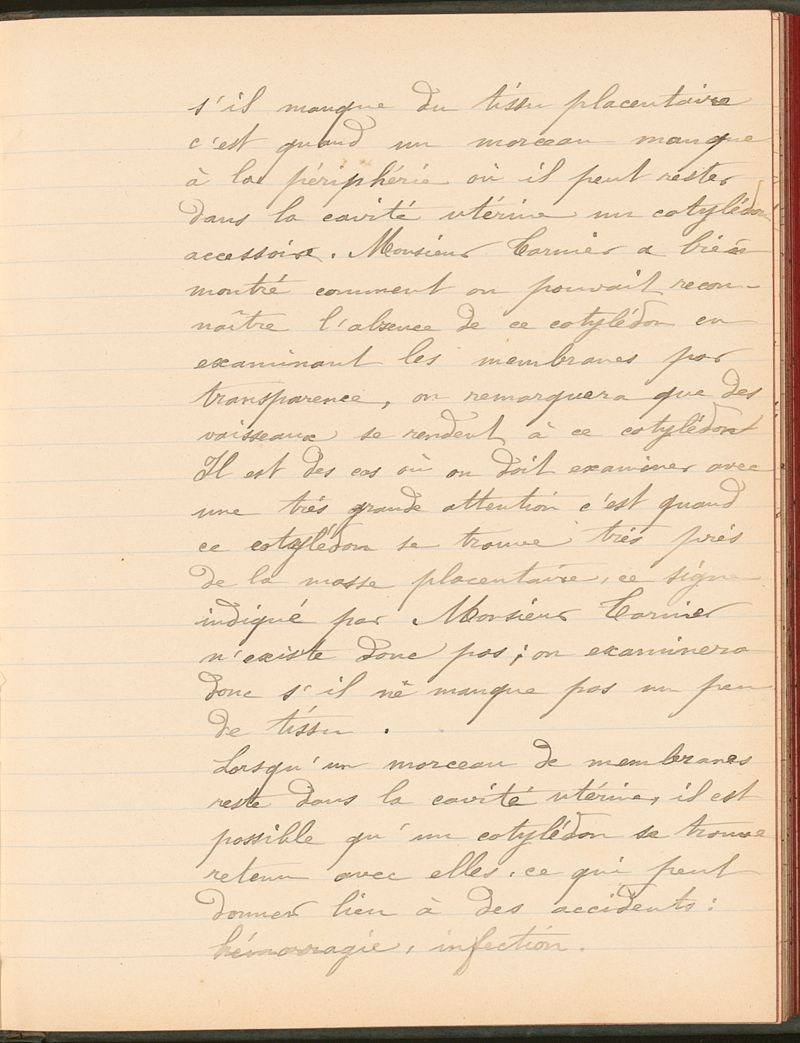 s'il manque du tissu placentaire
c'est quand un morceau manque
à la périphérie où il peut rester
dans la cavité utérine un cotylédon
accessoire. Monsieur Tarnier a bien
montré comment on pouvait recon-
naître l'absence de ce cotylédon en
examinant les membranes par
transparence, on remarquera que des
vaisseaux se rendent à ce cotylédont
Il est des cas où on doit examiner avec
une très grande attention c'est quand
ce cotylédon se trouve très près
de la masse placentaire, ce signe
indiqué par Monsieur Tarnier
n'existe donc pas; on examinera
donc s'il ne manque pas un peu
de tissu.
Lorsqu'un morceau de membranes
reste dans la cavité utérine, il est
possible qu'un cotylédon se trouve
retenu avec elles, ce qui peut
donner lieu à des accidents:
hémorragie, infection.